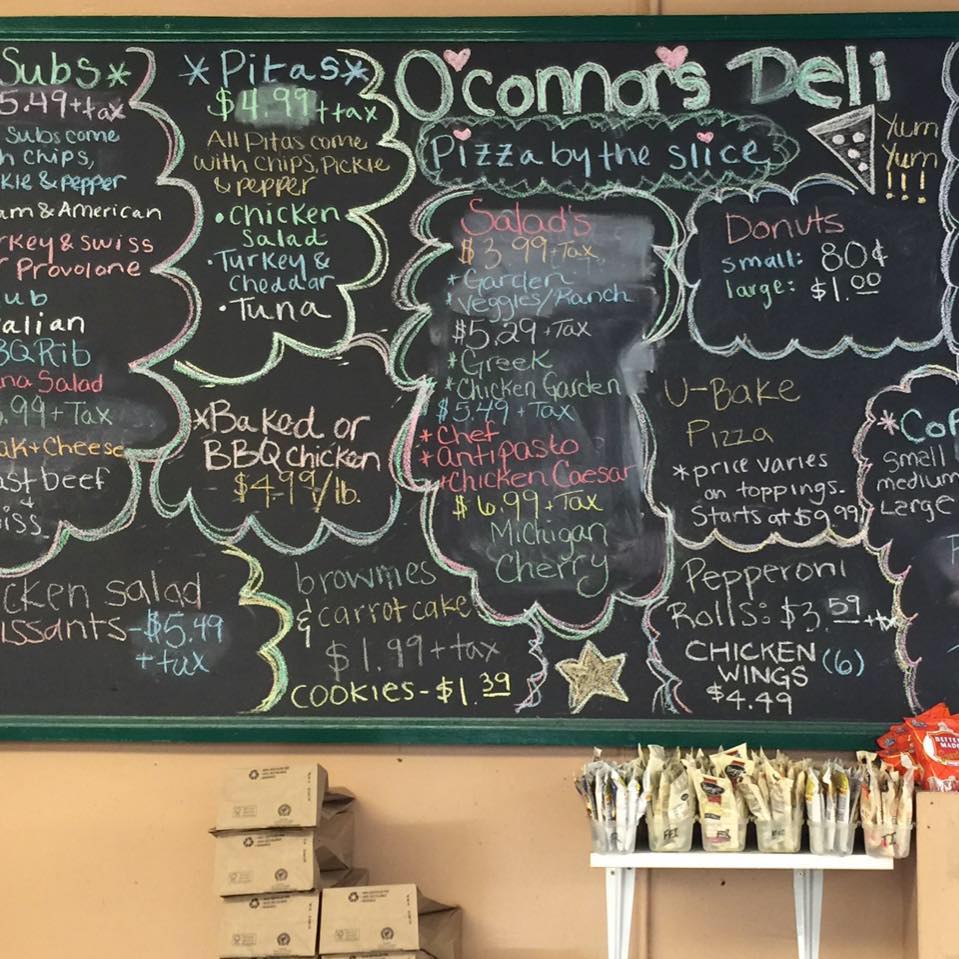 Subs*
5.49+tax
Subs come
h chips,
kle & pepper
am & American
rkey & Swiss
r Provolone
ub
alian
BQ Rib
na Salad
.99+Tax
ak+Cheese
ast beef
&
iss.
cken salad
issants-$5.49
+tax
*Pitas*
$4.99+tax
All Pitas come
with chips, Pickle
& pepper
•Chicken
Salad
•Turkey &
cheddar
•Tuna
*Baked or
BBQ chicken
$4.99/lb.
brownies
& carrot cake
$1.99+tax
COOKIES-$1.39
O'connor's Deli
Pizza by the slice
Yum
Yum
!!!
Salad's
$3.99+Tax
*Garden
*Veggies/Ranch
$5.29+Tax
*Greek
*Chicken Garden
$5.49+Tax
*Chef
*Antipasto
*Chicken Caesar
$6.99+Tax
Michigan
Cherry
Donuts
small: 80¢
large: $1.00
U-Bake
Pizza
*price varies
on toppings.
Starts at $9.99
Pepperoni
Rolls: $3.59+tx
CHICKEN (6)
WINGS
$4.49
*Cof
Small
medium
Large
BETTER
MADE